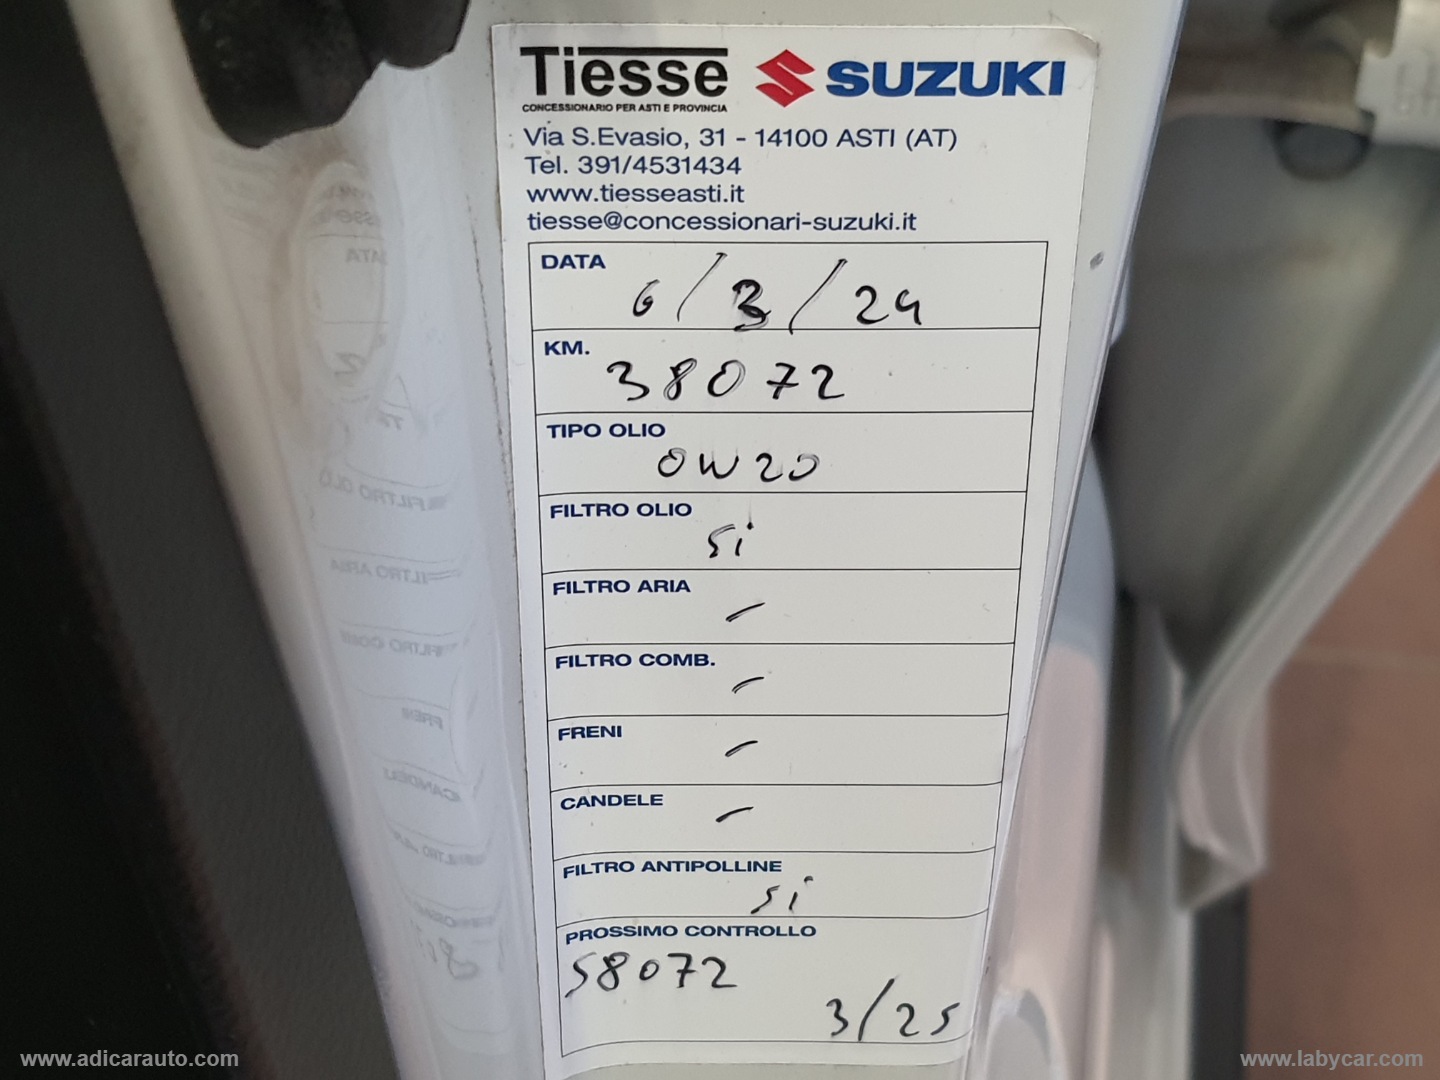 Tiesse SUZUKI
CONCESSIONARIO PER ASTI E PROVINCIA
Via S.Evasio, 31 - 14100 ASTI (AT)
Tel. 391/4531434
www.tiesseasti.it
tiesse@concessionari-suzuki.it
DATA
6/3/24
KM.
38072
TIPO OLIO
0W20
FILTRO OLIO
Si
FILTRO ARIA
-
FILTRO COMB.
-
FRENI
-
CANDELE
-
FILTRO ANTIPOLLINE
Si
PROSSIMO CONTROLLO
58072
3/25
www.adicarauto.com
www.labycar.com